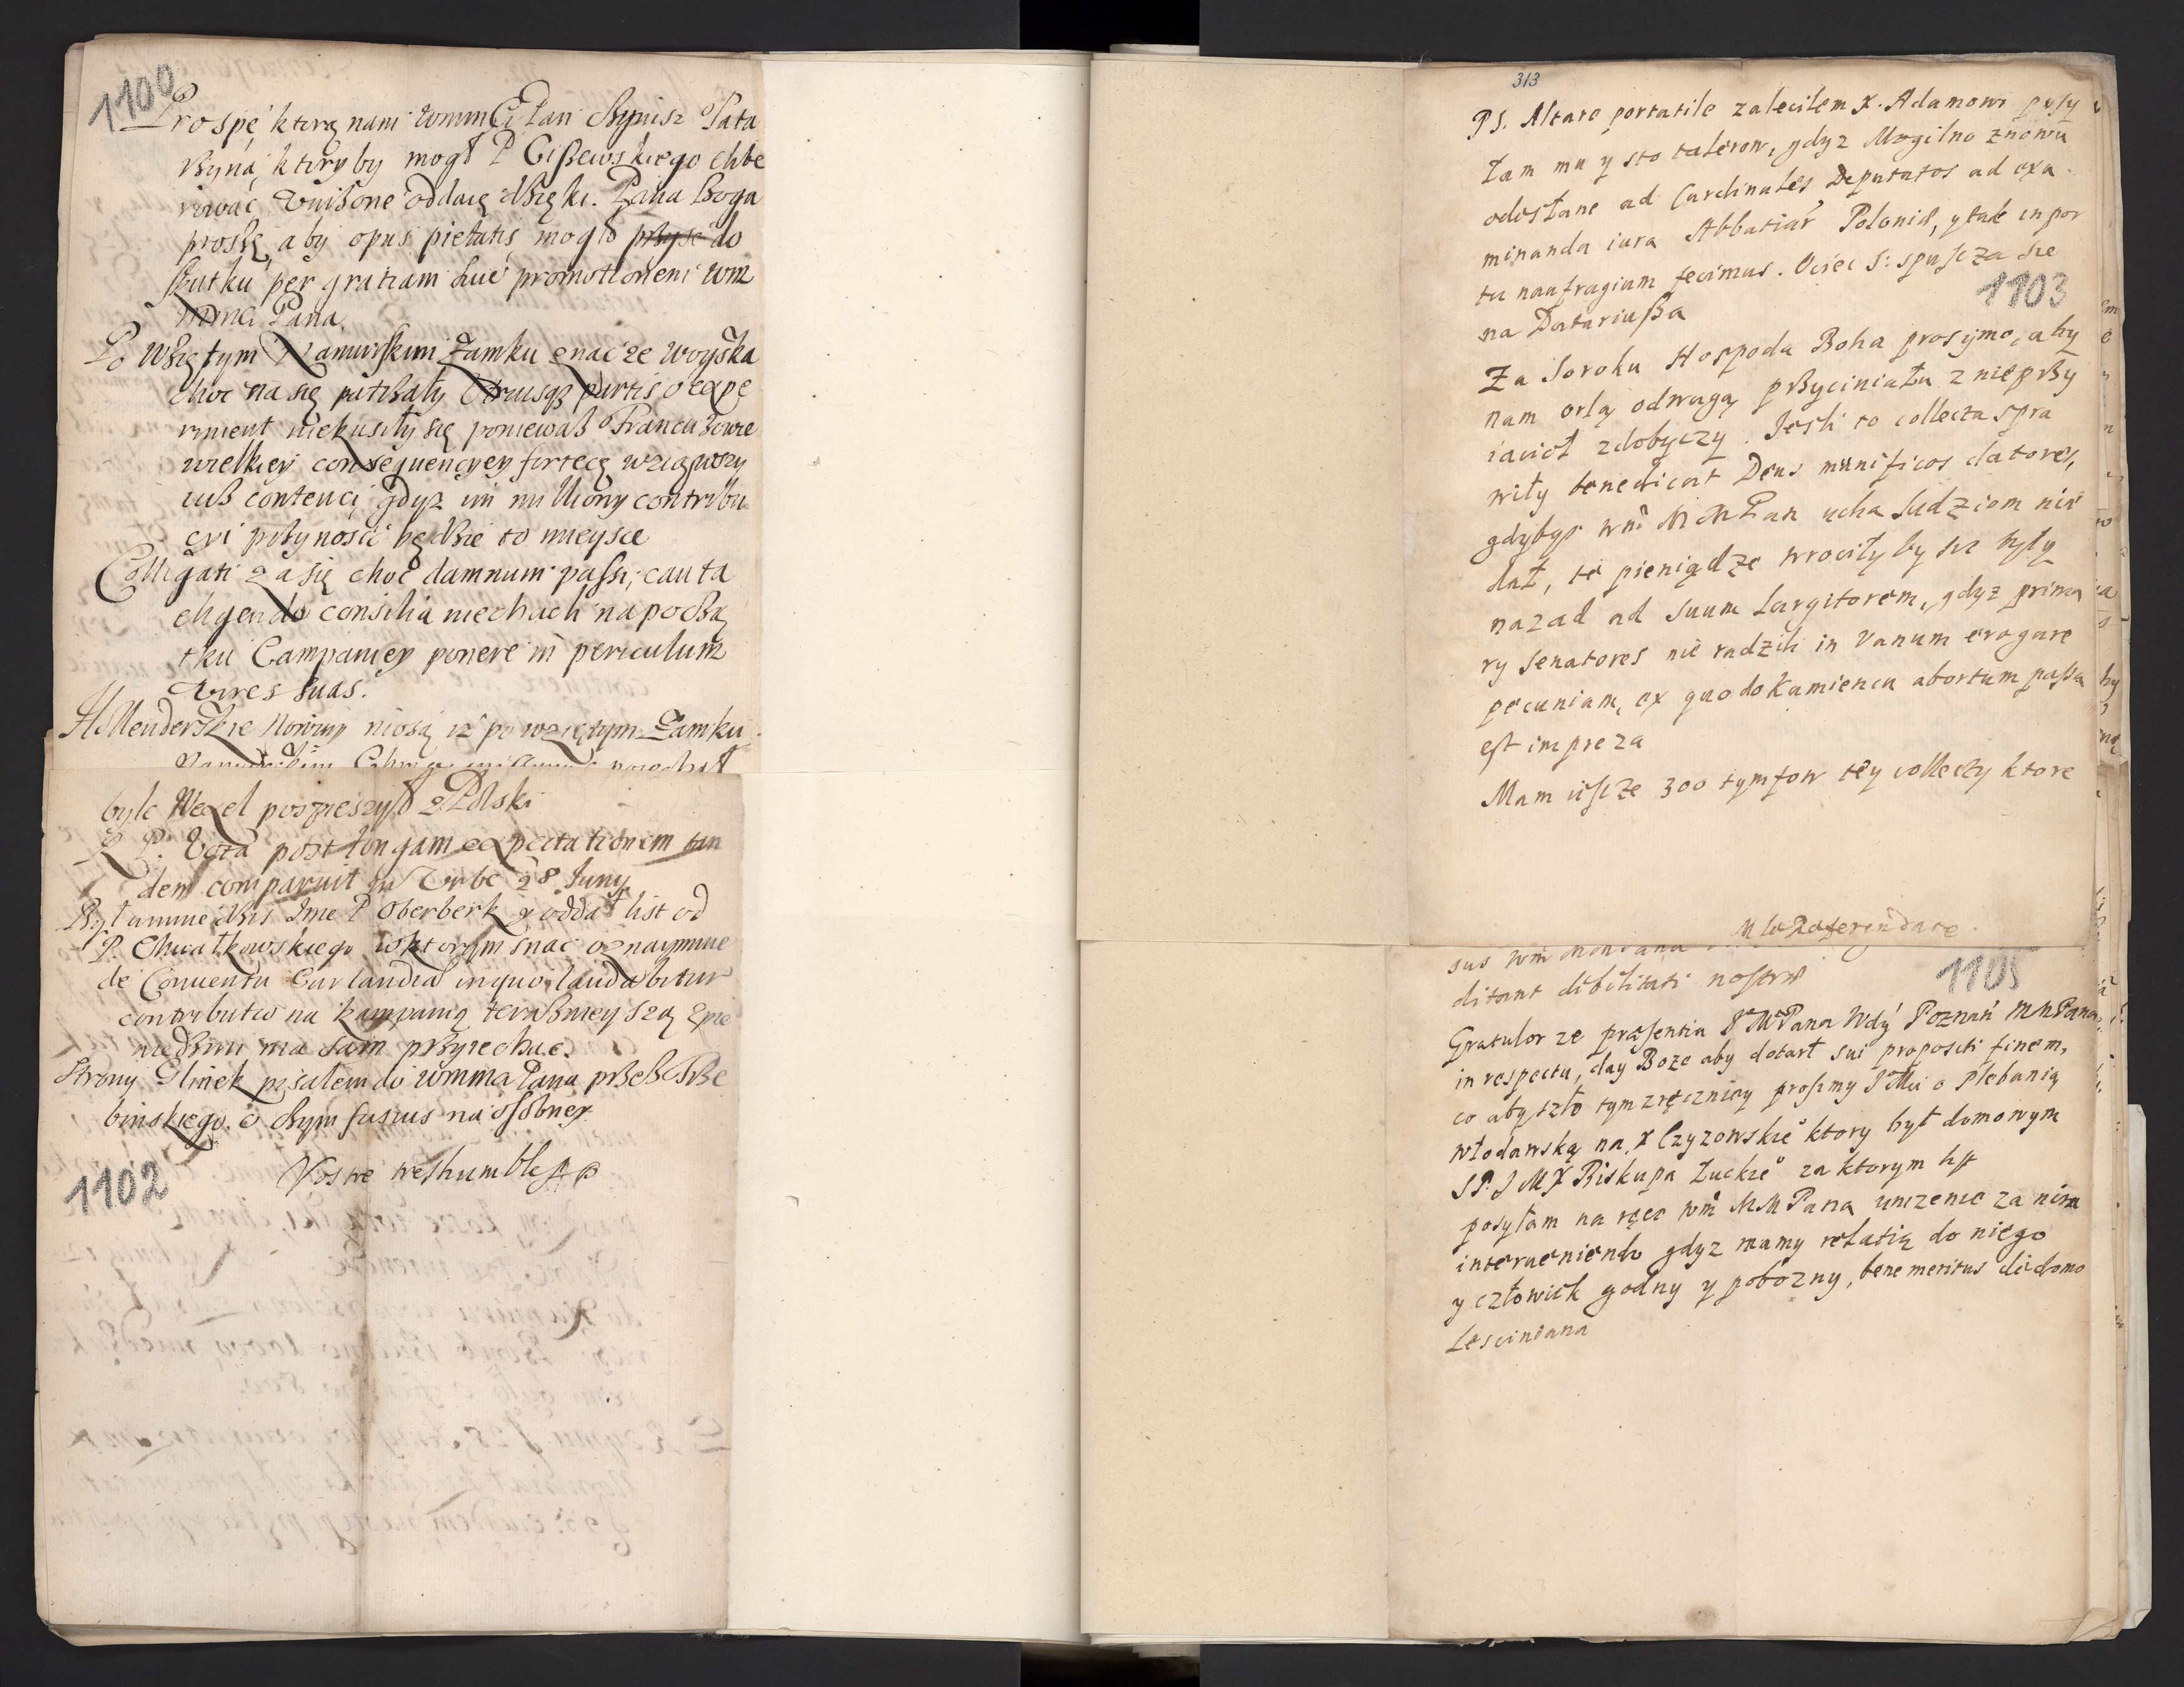 1100
Prospę ktorą nam WmmCi Pan Czynisz Tata
rzyna, ktory by mogł P Gissewskiego libe
rować unizone oddaię dzięki. Pana Boga
proszę, aby opus pietatis mogło przyść do
skutku per gratiam suę promotionem Wm
mmCi Pana.
Po Wziętym Namurskim Zamku znac ze woyska
choc na się patrzały utriusq partis o expe
riment niekusiły się poniewasz Francuzowie
wielkiey consequencyey fortecę wziąwszy
iusz contenci gdyz im milliony contribu
cyi przynosić będzie to mieysce
Colligati zasię choc damnum passi, cauta
eligendo consilia niechcach na począ
tku Campaniey ponere in periculum
vires suas.
Hollenderskie Nowiny niosą iz po wziętym Zamku
bylc Wexel pospieszył z Polski
R P. Vota post longam expectationem tan
dem comparuit in Urbe 28 Juny
Był umnie dzis Jme P Oberberk y oddał list od
P. Chwałkowskiego wktorym snac oznaymuie
de Conventu Curlandiæ in quo laudabitur
contributio na kampanią teraznieyszą z pie
niedzmi ma sam przyiechac.
Strony Glinek pisałem do Wmma Pana przez Trze
binskiego. o czym fusius na osobney
Vostre treshumble
1102
313
PS. Altare portatile zaleciłem X. Adamowi posy
łam mu y sto talerow, gdyz Mogilno znowu
odesłane ad Cardinales Deputatos ad exa
minanda iura Abbatiar Poloniæ, y tak in por
tu naufragium fecimus. Ociec S: spuscza się
na Datariusza
1103
Za Soroku Hospoda Boha prosymo, aby
nam orlą odwagą przyciniału z nieprzy
iaciół zdobyczy. Jesli to collecta spra
wiły benedicat Deus munificos datores,
gdybys wm MMPan ucha ludziom nie
dał, te pieniądze wrociły by się tyły
nazad ad suum Largitorem, gdyz prima
ry Senatores nie radzili in Vanum erogare
pecuniam, ex quo do Kamienca abortum passa
est impreza
Mam iescze 300 tymfow tey collecty ktore
Mło Referendarę.
1105
ditant debilitati nostræ
Gratulor ze præsentia JMPana Wdy Poznań MMPana
in respectu, day Boze aby dotarł sui propositi finem,
co aby szło tym zręczniey prosimy JMci o Plebanią
włodawską na X Czyzowskie ktory był domowym
SP. JMX Biskupa Łuckie za ktorym list
posyłam na ręce wm MMPana unizenie za nim
interveniendo gdyz mamy relatią do niego
y człowiek godny y pobozny, bene meritus de domo
Lesciniana